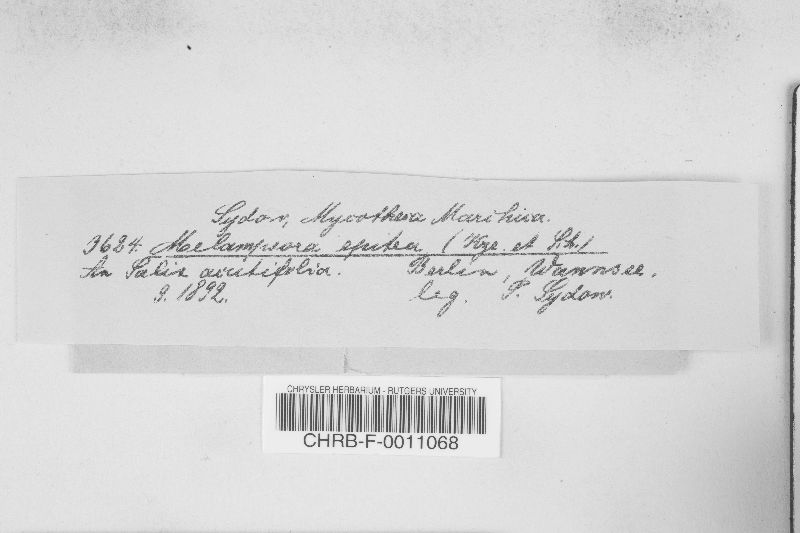 Sydow, Mycotheca Marchica.
3624. Melampsora epitea (Kze. et Sch.)
An Salix acutifolia. Berlin, Wannsee.
9. 1892. leg. P. Sydow.
CHRYSLER HERBARIUM - RUTGERS UNIVERSITY
CHRB-F-0011068